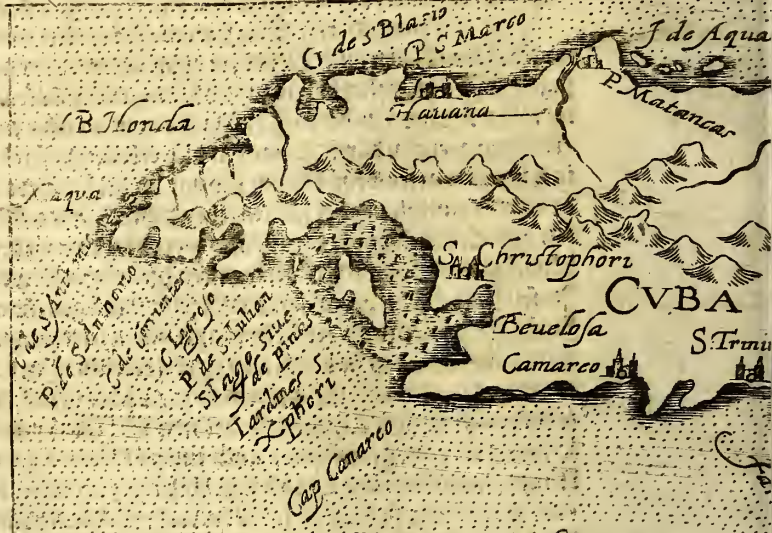 G de S Blasio
P S Marco
J de Aqua
B Honda
Hauana
P Matancas
C de S Antonio
P de S Antnonio
C de Corrientes
C Legroso
P de S. Iulian
S Iago siue
y de pinos
Iardines S
Xphori
S Christophori
CVBA
Beuelosa
Camareo
S. Trini
Cap Canareo